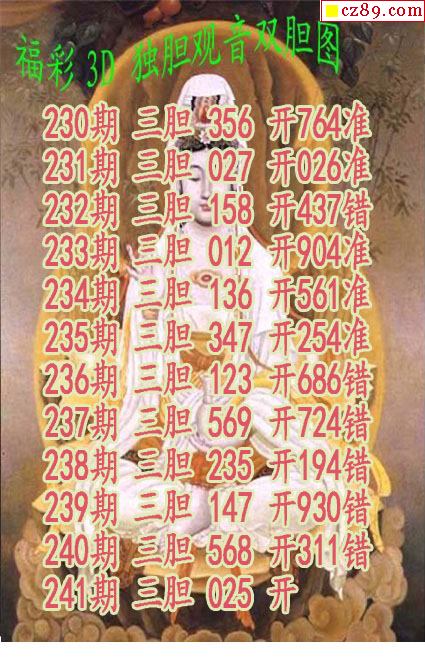 cz89.com
福彩 3D 独胆观音双胆图
230期 三胆 356 开764准
231期 三胆 027 开026准
232期 三胆 158 开437错
233期 三胆 012 开904准
234期 三胆 136 开561准
235期 三胆 347 开254准
236期 三胆 123 开686错
237期 三胆 569 开724错
238期 三胆 235 开194错
239期 三胆 147 开930错
240期 三胆 568 开311错
241期 三胆 025 开